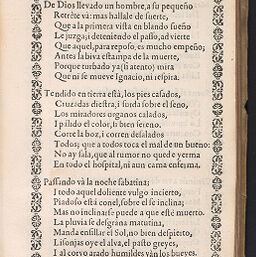 De Dios llevado un hombre, a su pequeño
Retrete và: mas hallale de suerte,
Que a la primera vista en blando sueño
Le juzga; i deteniendo el passo, advierte
Que aquel, para reposo, es mucho empeño;
Antes la biva estampa de la muerte,
Porque turbado ya (si atento) mira
Que ni se mueve Ignacio, ni respira.
Tendido en tierra està, los pies calçados,
Cruzadas diestra, i surda sobre el seno,
Los miradores organos calados,
I palido el color, si bien sereno.
Corre la boz, i corren desalados
Todos; que a todos toca el mal de un bueno:
No ay sala, que al rumor no quede yerma
En todo el hospital, ni aun cama enferma.
Passando và la noche sabatina;
I todo aquel doliente vulgo incierto,
Piadoso està con el, sobre el se inclina;
Mas no inclinarse puede a que estè muerto.
La pluvia se desgrana matutina,
Manda ensillar el Sol, no bien despierto,
Lisonjas oye el alva, el pasto greyes,
I al corvo arado humildes vàn los bueyes.